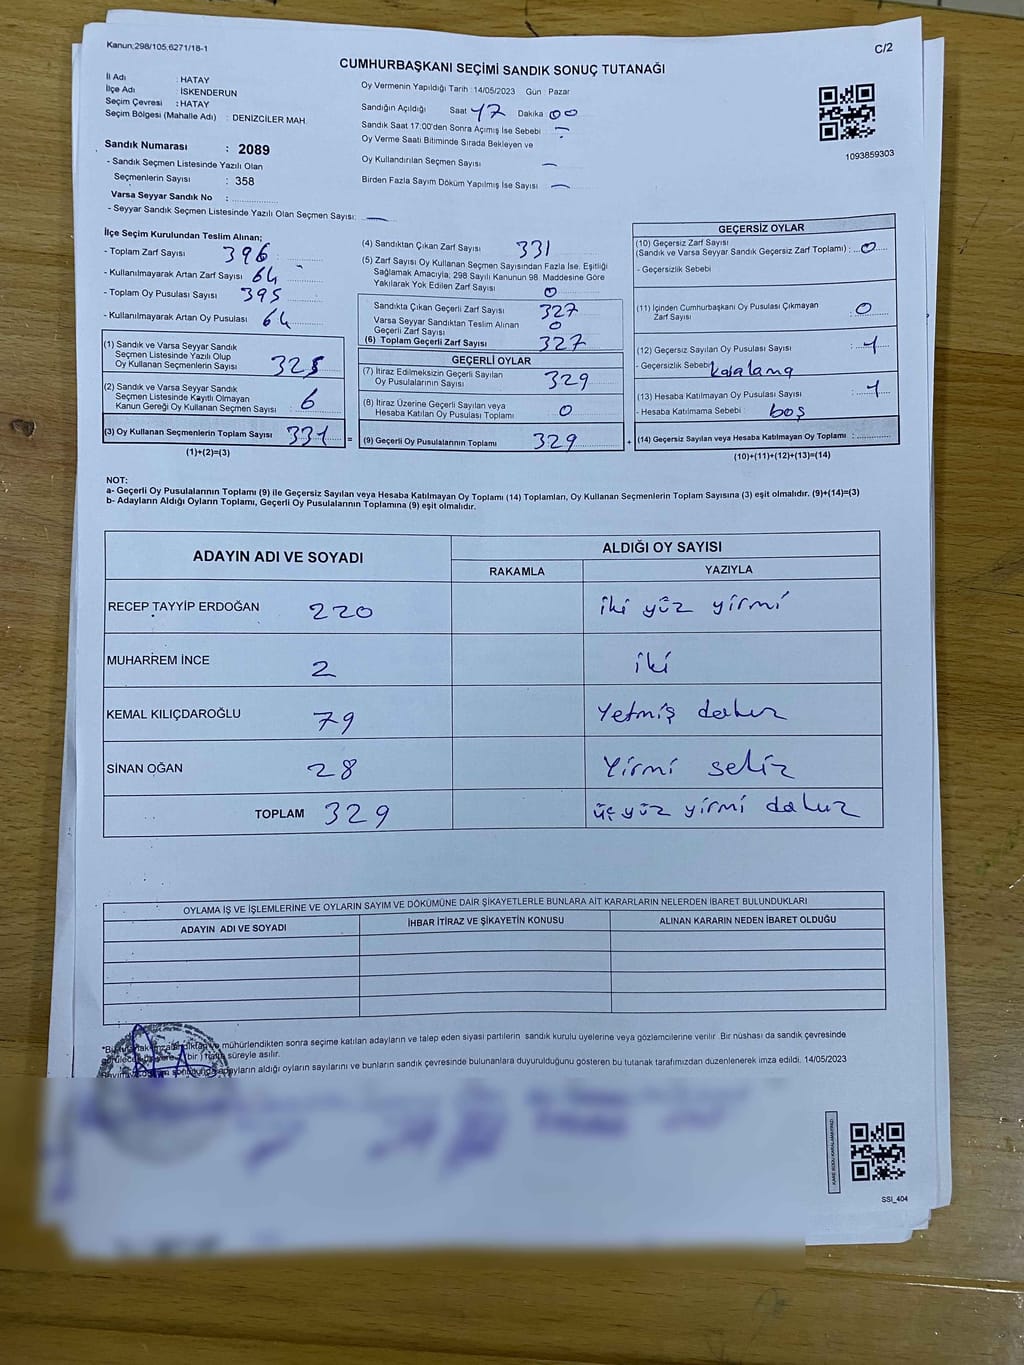 Kanun:298/105,6271/18-1
C/2
CUMHURBAŞKANI SEÇİMİ SANDIK SONUÇ TUTANAĞI
İl Adı : HATAY
İlçe Adı : İSKENDERUN
Seçim Çevresi : HATAY
Seçim Bölgesi (Mahalle Adı) : DENİZCİLER MAH.
Oy Vermenin Yapıldığı Tarih :14/05/2023 Gün : Pazar
Sandığın Açıldığı Saat 17 Dakika 00
Sandık Saat 17:00'den Sonra Açılmış İse Sebebi : -
Oy Verme Saati Bitiminde Sırada Bekleyen ve
Oy Kullandırılan Seçmen Sayısı —
Birden Fazla Sayım Döküm Yapılmış İse Sayısı —
1093859303
Sandık Numarası : 2089
- Sandık Seçmen Listesinde Yazılı Olan
Seçmenlerin Sayısı : 358
Varsa Seyyar Sandık No : ..................
- Seyyar Sandık Seçmen Listesinde Yazılı Olan Seçmen Sayısı: —
İlçe Seçim Kurulundan Teslim Alınan;
- Toplam Zarf Sayısı 396
- Kullanılmayarak Artan Zarf Sayısı 64
- Toplam Oy Pusulası Sayısı 395
- Kullanılmayarak Artan Oy Pusulası 64
(1) Sandık ve Varsa Seyyar Sandık
Seçmen Listesinde Yazılı Olup
Oy Kullanan Seçmenlerin Sayısı 325
(2) Sandık ve Varsa Seyyar Sandık
Seçmen Listesinde Kayıtlı Olmayan
Kanun Gereği Oy Kullanan Seçmen Sayısı : 6
(3) Oy Kullanan Seçmenlerin Toplam Sayısı 331 =
(1)+(2)=(3)
(4) Sandıktan Çıkan Zarf Sayısı 331
(5) Zarf Sayısı Oy Kullanan Seçmen Sayısından Fazla İse, Eşitliği
Sağlamak Amacıyla, 298 Sayılı Kanunun 98. Maddesine Göre
Yakılarak Yok Edilen Zarf Sayısı 0
Sandıkta Çıkan Geçerli Zarf Sayısı 327
Varsa Seyyar Sandıktan Teslim Alınan
Geçerli Zarf Sayısı 0
(6) Toplam Geçerli Zarf Sayısı 327
GEÇERLİ OYLAR
(7) İtiraz Edilmeksizin Geçerli Sayılan
Oy Pusulalarının Sayısı 329
(8) İtiraz Üzerine Geçerli Sayılan veya
Hesaba Katılan Oy Pusulası Toplamı 0
(9) Geçerli Oy Pusulalarının Toplamı 329 +
GEÇERSİZ OYLAR
(10) Geçersiz Zarf Sayısı
(Sandık ve Varsa Seyyar Sandık Geçersiz Zarf Toplamı) : 0
- Geçersizlik Sebebi
(11) İçinden Cumhurbaşkanı Oy Pusulası Çıkmayan
Zarf Sayısı : 0
(12) Geçersiz Sayılan Oy Pusulası Sayısı : 1
- Geçersizlik Sebebi karalama
(13) Hesaba Katılmayan Oy Pusulası Sayısı : 1
- Hesaba Katılmama Sebebi : boş
(14) Geçersiz Sayılan veya Hesaba Katılmayan Oy Toplamı : ............
(10)+(11)+(12)+(13)=(14)
NOT:
a- Geçerli Oy Pusulalarının Toplamı (9) ile Geçersiz Sayılan veya Hesaba Katılmayan Oy Toplamı (14) Toplamları, Oy Kullanan Seçmenlerin Toplam Sayısına (3) eşit olmalıdır. (9)+(14)=(3)
b- Adayların Aldığı Oyların Toplamı, Geçerli Oy Pusulalarının Toplamına (9) eşit olmalıdır.
ADAYIN ADI VE SOYADI
ALDIĞI OY SAYISI
RAKAMLA YAZIYLA
RECEP TAYYİP ERDOĞAN 220 iki yüz yirmi
MUHARREM İNCE 2 iki
KEMAL KILIÇDAROĞLU 79 Yetmiş dokuz
SİNAN OĞAN 28 Yirmi sekiz
TOPLAM 329 üç yüz yirmi dokuz
OYLAMA İŞ VE İŞLEMLERİNE VE OYLARIN SAYIM VE DÖKÜMÜNE DAİR ŞİKAYETLERLE BUNLARA AİT KARARLARIN NELERDEN İBARET BULUNDUKLARI
ADAYIN ADI VE SOYADI İHBAR İTİRAZ VE ŞİKAYETİN KONUSU ALINAN KARARIN NEDEN İBARET OLDUĞU
mühürlendikten sonra seçime katılan adayların ve talep eden siyasi partilerin sandık kurulu üyelerine veya gözlemcilerine verilir. Bir nüshası da sandık çevresinde
süreyle asılır.
adayların aldığı oyların sayılarını ve bunların sandık çevresinde bulunanlara duyurulduğunu gösteren bu tutanak tarafımızdan düzenlenerek imza edildi. 14/05/2023
SSI_404